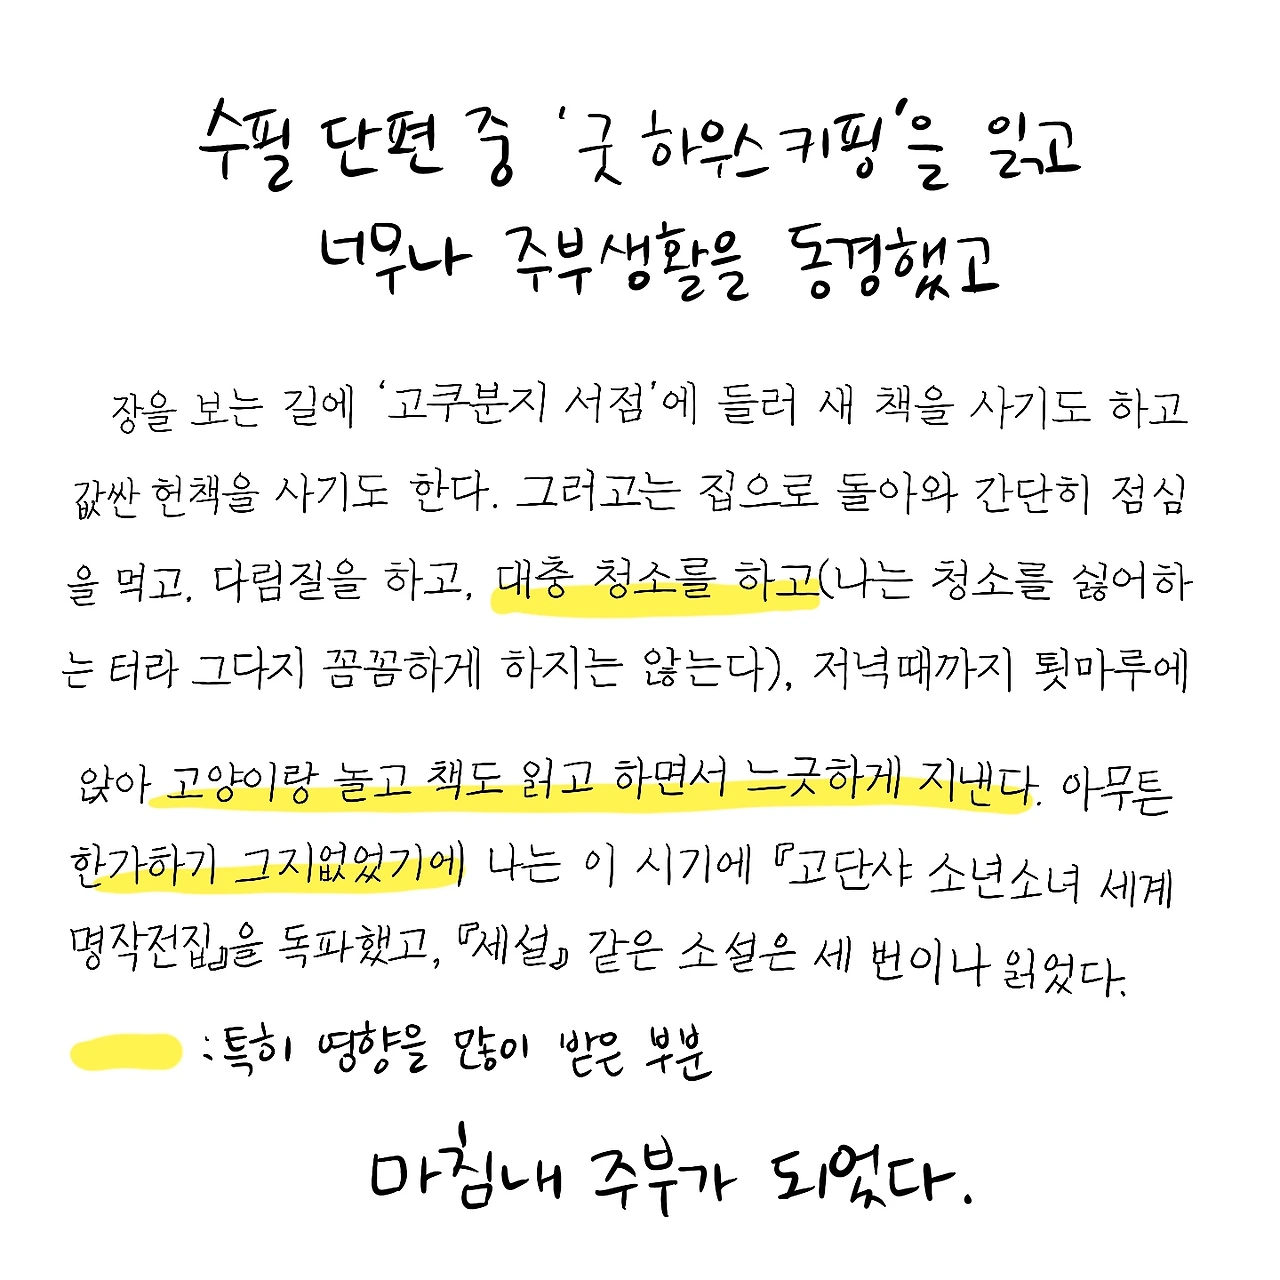 수필 단편 중 '굿 하우스키핑'을 읽고
너무나 주부생활을 동경했고
장을 보는 길에 '고쿠분지 서점'에 들러 새 책을 사기도 하고
값싼 헌책을 사기도 한다. 그러고는 집으로 돌아와 간단히 점심
을 먹고, 다림질을 하고, 대충 청소를 하고(나는 청소를 싫어하
는 터라 그다지 꼼꼼하게 하지는 않는다), 저녁때까지 툇마루에
앉아 고양이랑 놀고 책도 읽고 하면서 느긋하게 지낸다. 아무튼
한가하기 그지없었기에 나는 이 시기에 『고단샤 소년소녀 세계
명작전집』을 독파했고, 『세설』 같은 소설은 세 번이나 읽었다.
: 특히 영향을 많이 받은 부분
마침내 주부가 되었다.